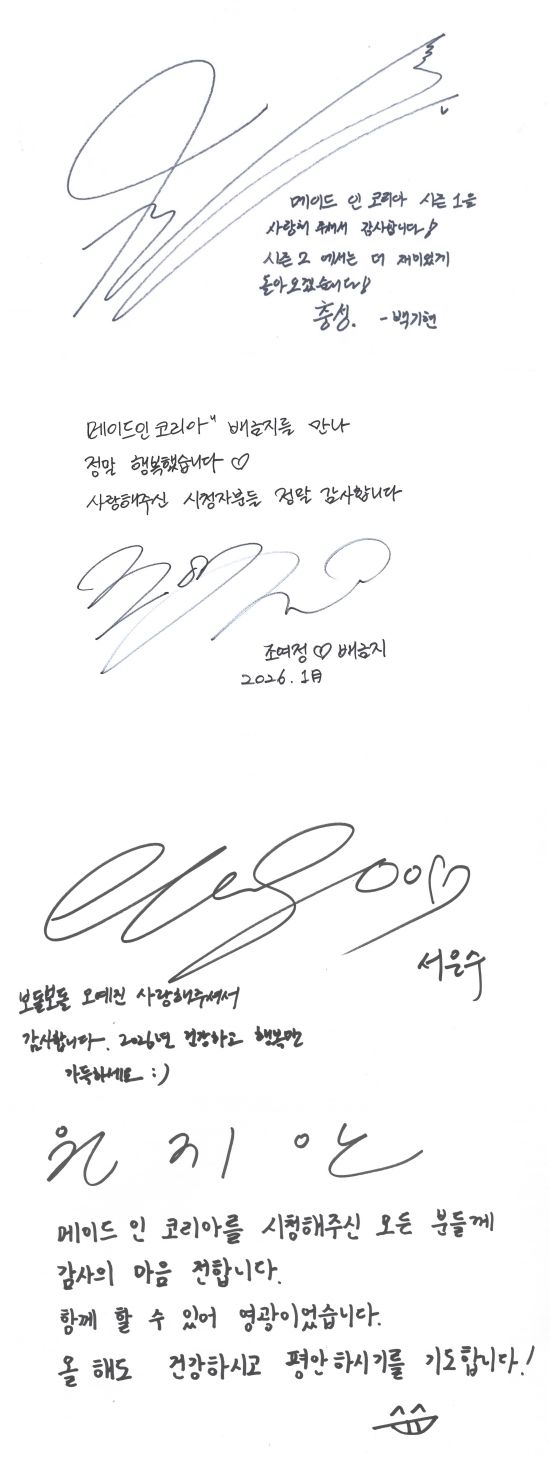 메이드 인 코리아 시즌 1을
사랑해 주셔서 감사합니다!
시즌 2 에서는 더 재미있게
돌아오겠습니다!
충성. - 백기현
메이드인 코리아" 배금지를 만나
정말 행복했습니다 ♡
사랑해주신 시청자분들 정말 감사합니다
조여정 ♡ 배금지
2026. 1月
서은수
보들보들 오예진 사랑해주셔서
감사합니다. 2026년 건강하고 행복만
가득하세요 :)
원 지 안
메이드 인 코리아를 시청해주신 모든 분들께
감사의 마음 전합니다.
함께 할 수 있어 영광이었습니다.
올 해도 건강하시고 평안하시기를 기도합니다!